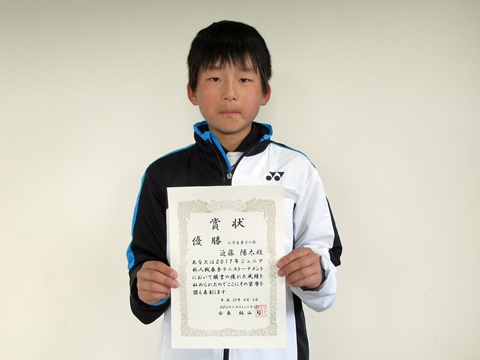 賞状
優勝 小学生男子の部
近藤 陽太殿
あなたは2017年ジュニア
新人戦春季テニストーナメント
において頭書の優れた成績を
収められたのでここにその栄誉を
讃え表彰します
平成29年4月2日
会長 飯山